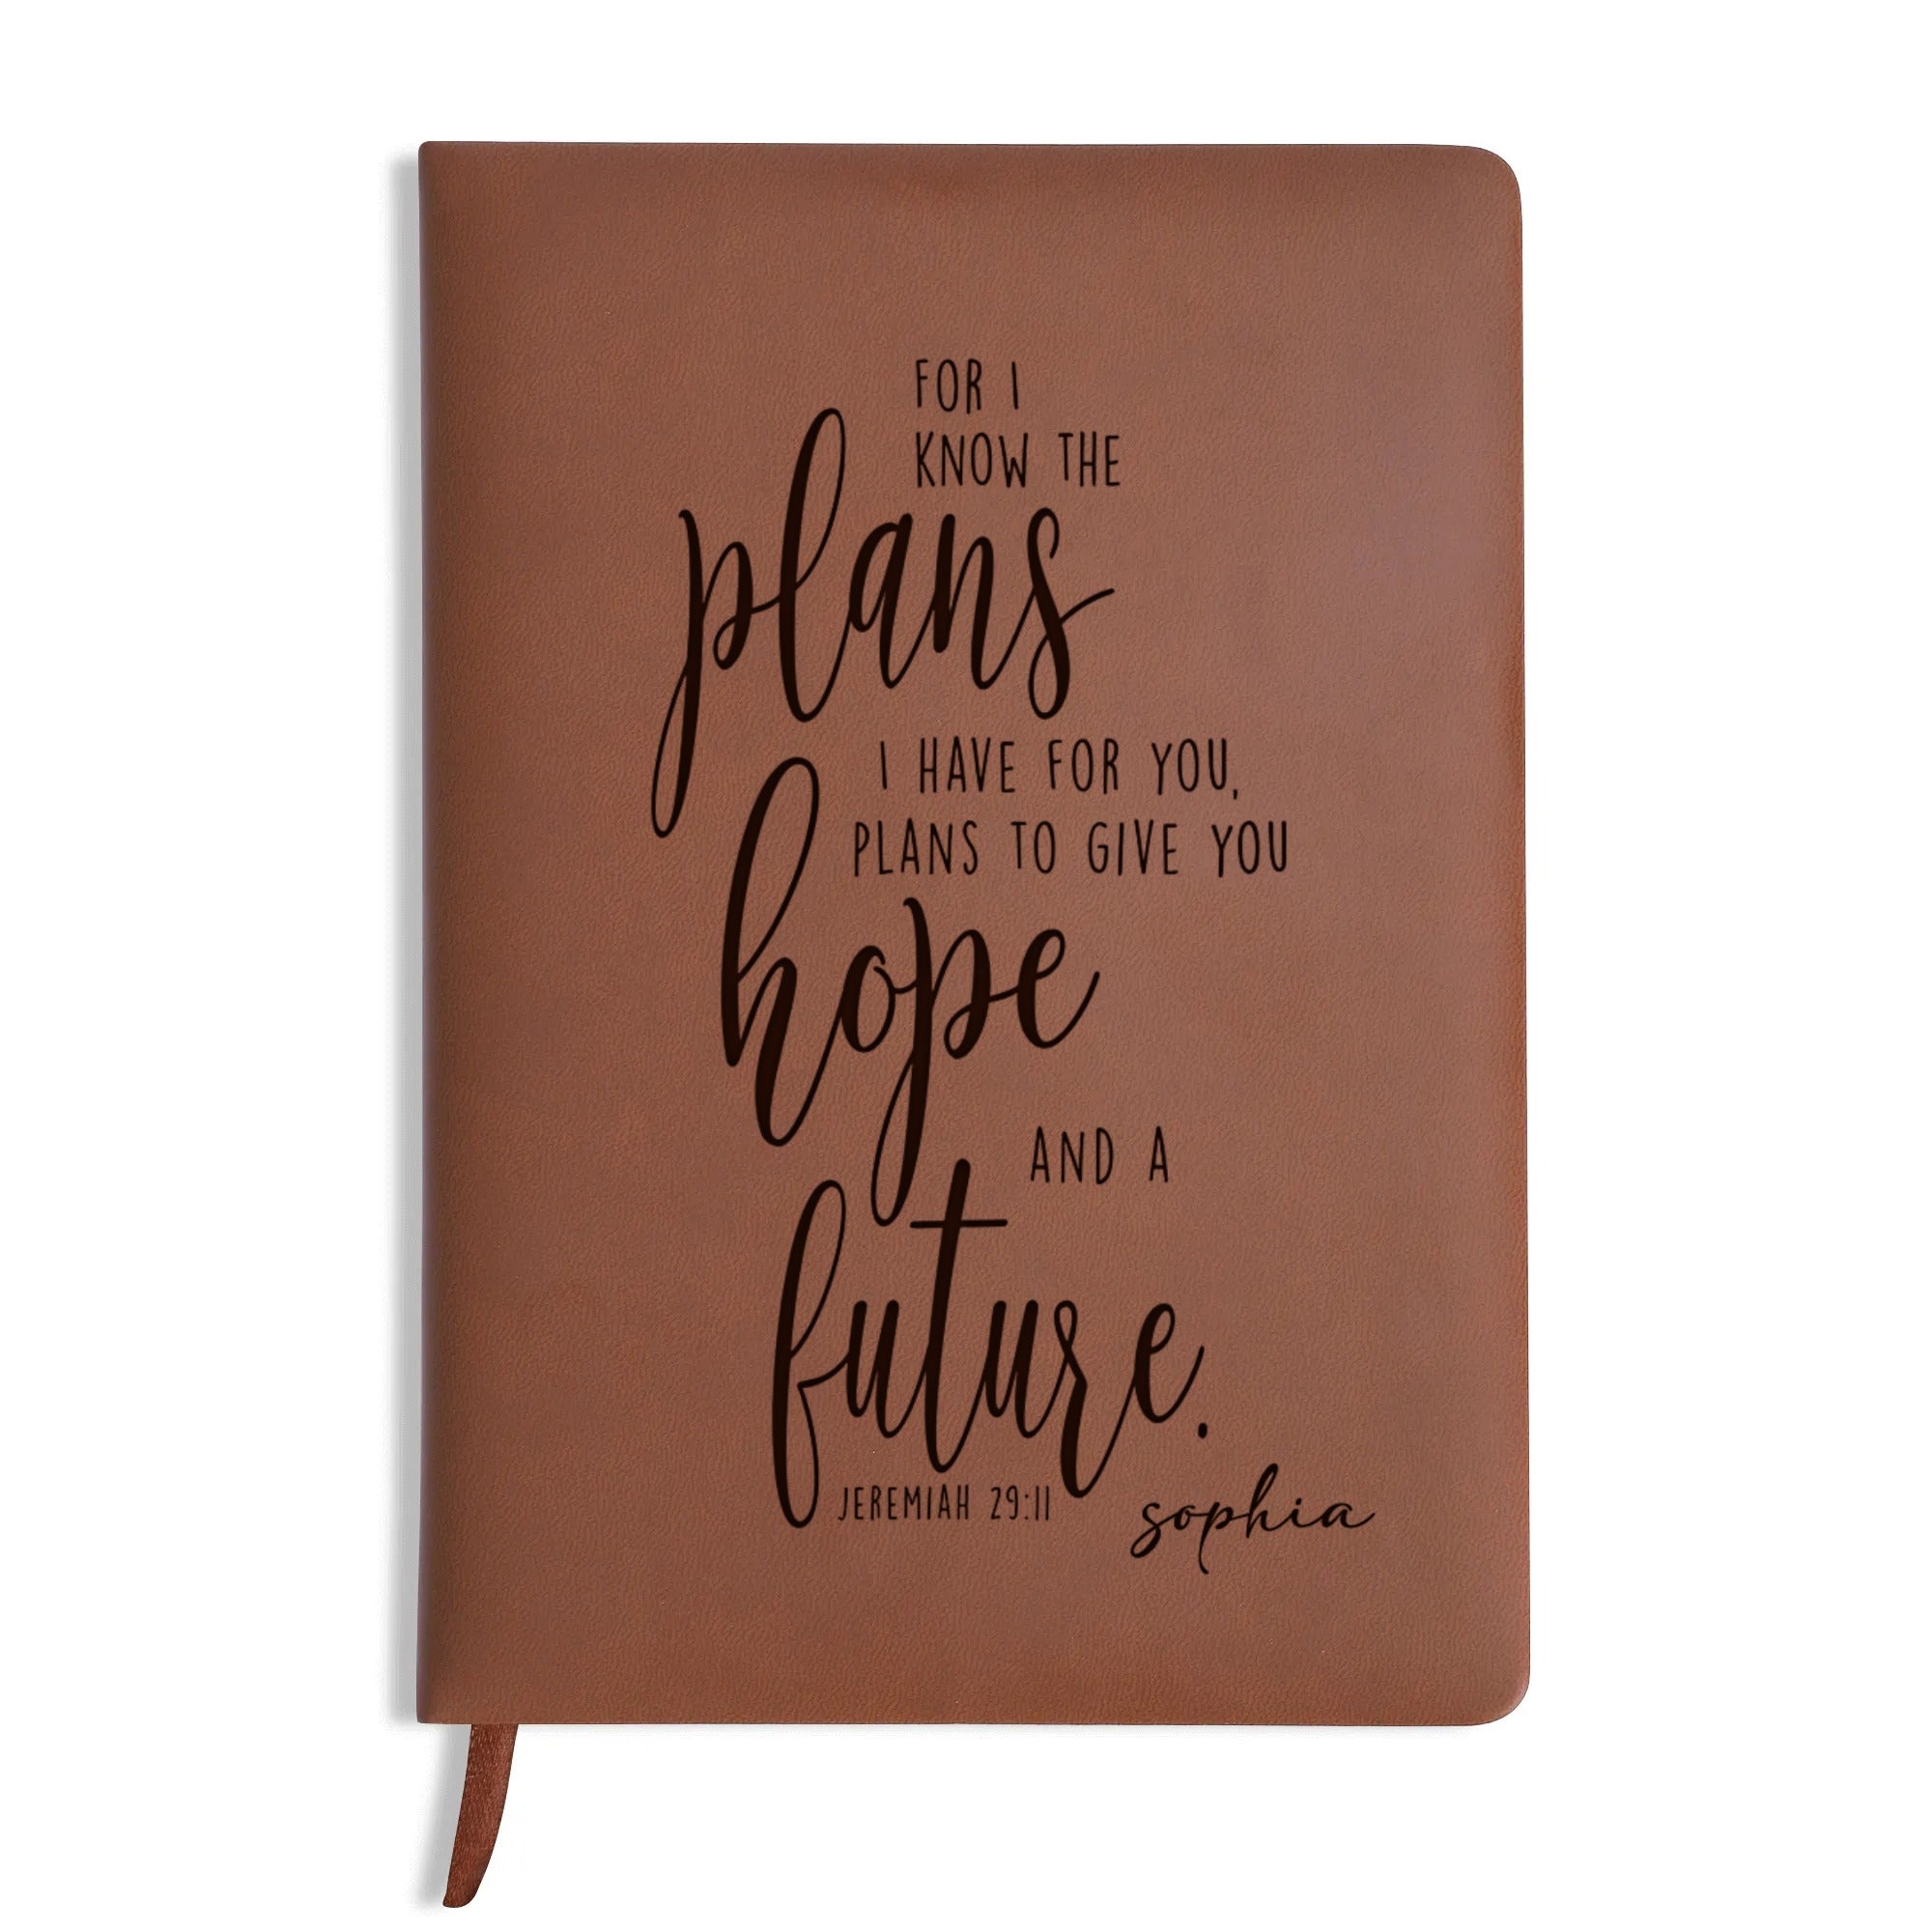 FOR I
KNOW THE
plans
I HAVE FOR YOU,
PLANS TO GIVE YOU
hope
AND A
future.
JEREMIAH 29:11
sophia